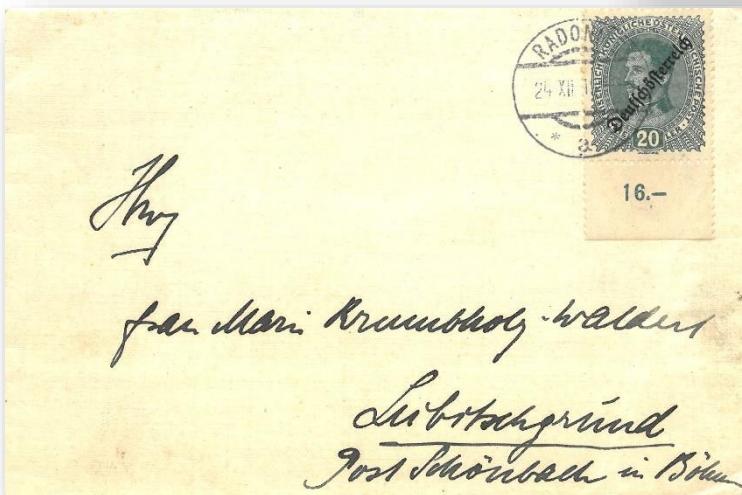 RADON
24 XII 1
* a
KAISERLICHE KÖNIGLICHE ÖSTERREICHISCHE POST
Deutschösterreich
20
16.–
Frau Marie Krumbholz-Waldert
Leibitschgrund
Post Schönbach in Böhmen